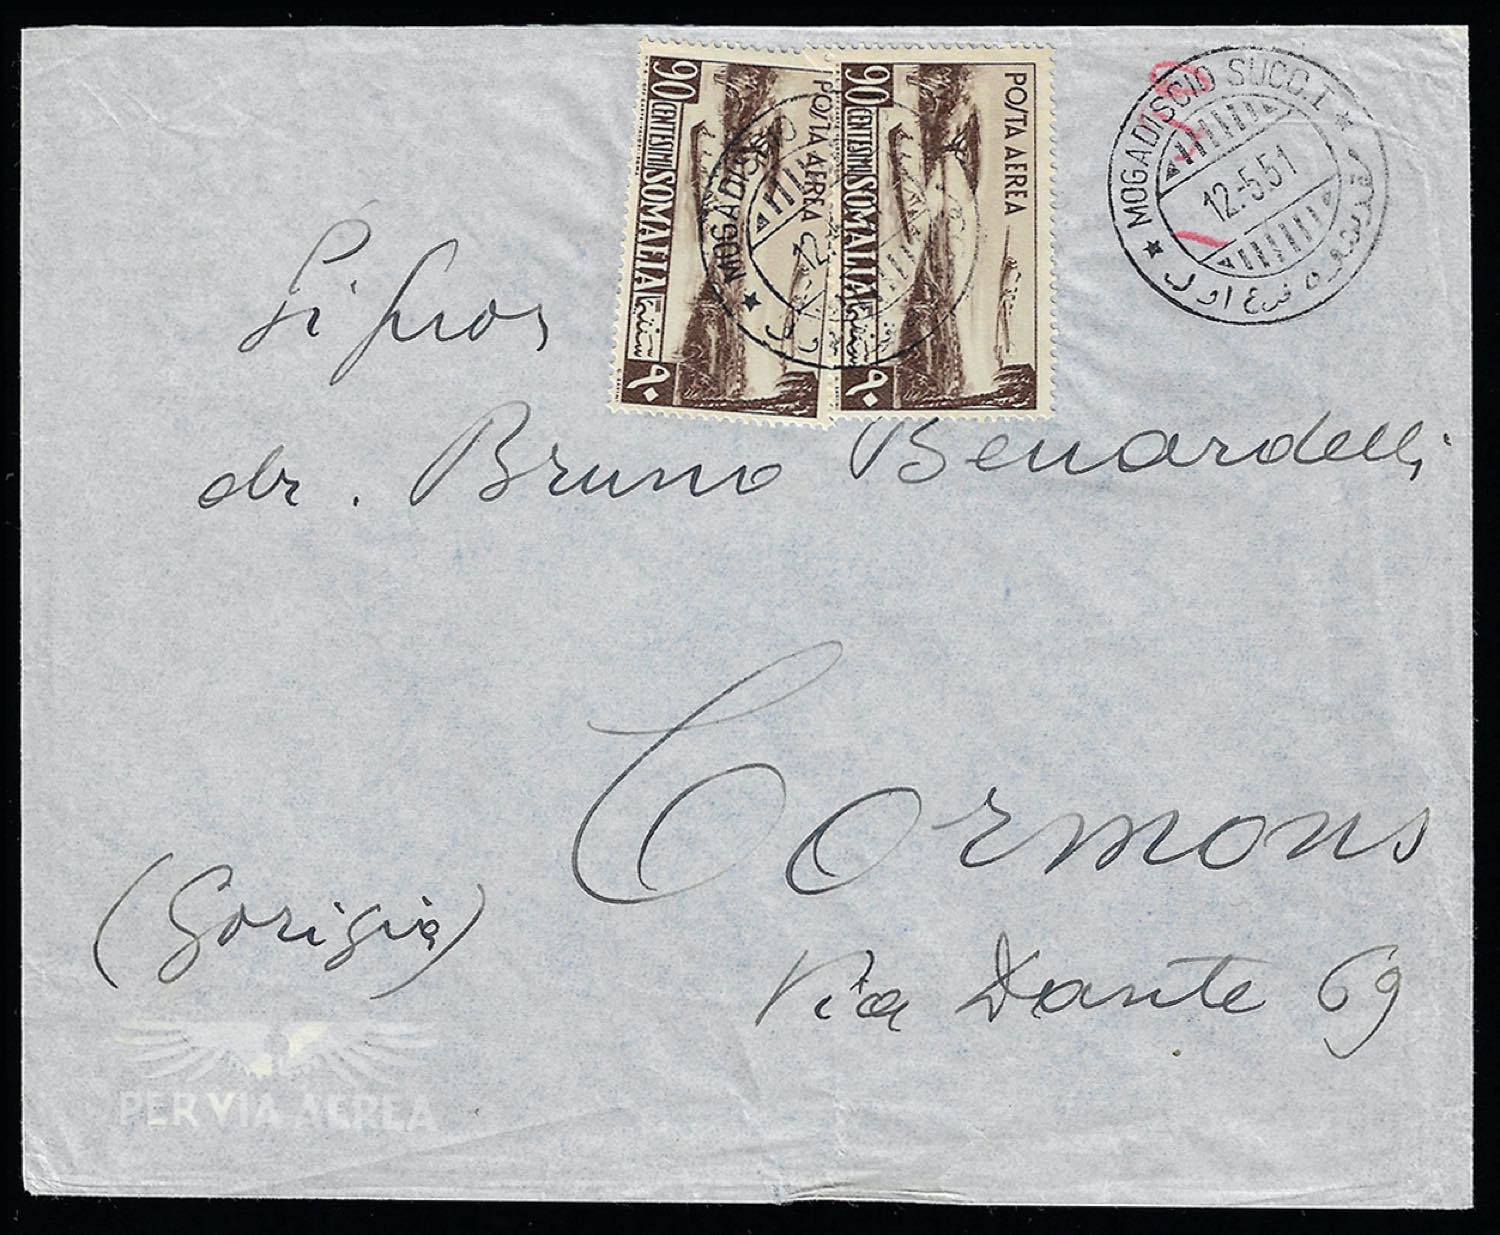 90 CENTESIMI SOMALIA سنتيما ٩٠
POSTA AEREA
90 CENTESIMI SOMALIA سنتيما ٩٠
POSTA AEREA
MOGADISCIO
12.
MOGADISCIO SUCC. 1
12.-5.51
فرع اول
dr. Bruno Benardelli
Cormons
(Gorizia)
Via Dante 69
PER VIA AEREA